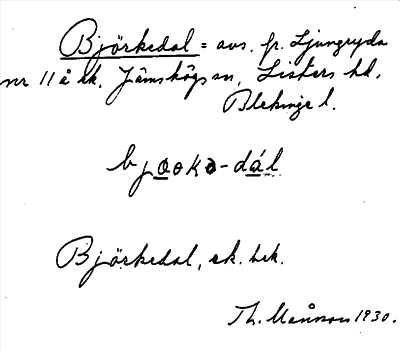 Björkedal = avs. fr. Ljungryda
nr 11 å ek. Jämshögs sn, Listers hd,
Blekinge l.
bjɷɵkə-dál
Björkedal, ek. bek.
Th. Månsson 1930.